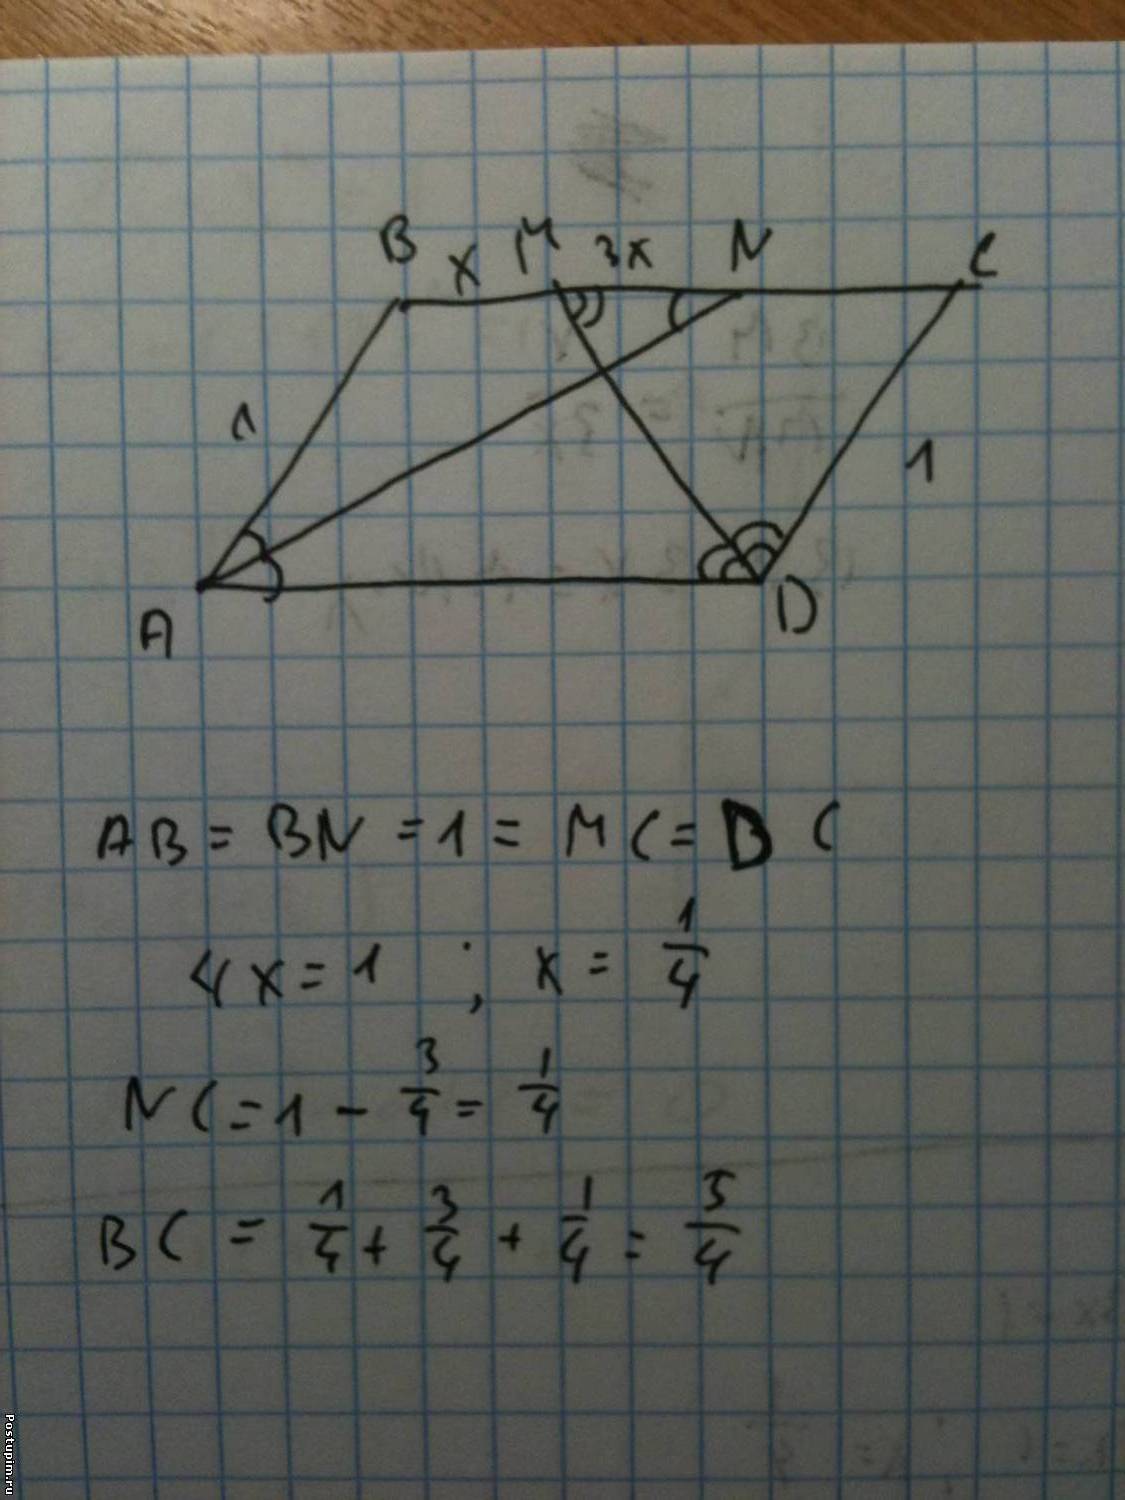 B x M 3x N C
1 1
A D
AB = BN = 1 = MC = DC
4x = 1 ; x = 1/4
NC = 1 - 3/4 = 1/4
BC = 1/4 + 3/4 + 1/4 = 5/4
Postupim.ru